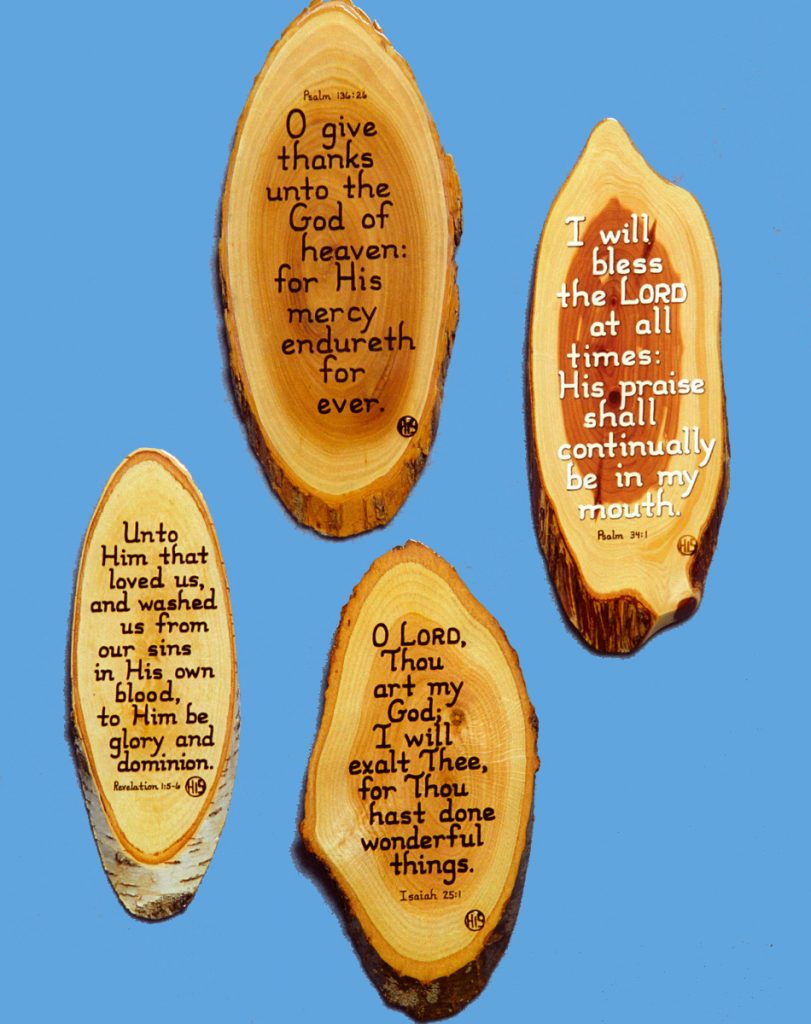 Psalm 136:26
O give
thanks
unto the
God of
heaven:
for His
mercy
endureth
for
ever.
HIS
I will
bless
the LORD
at all
times:
His praise
shall
continually
be in my
mouth.
Psalm 34:1
HIS
Unto
Him that
loved us,
and washed
us from
our sins
in His own
blood,
to Him be
glory and
dominion.
Revelation 1:5-6
HIS
O LORD,
Thou
art my
God;
I will
exalt Thee,
for Thou
hast done
wonderful
things.
Isaiah 25:1
HIS